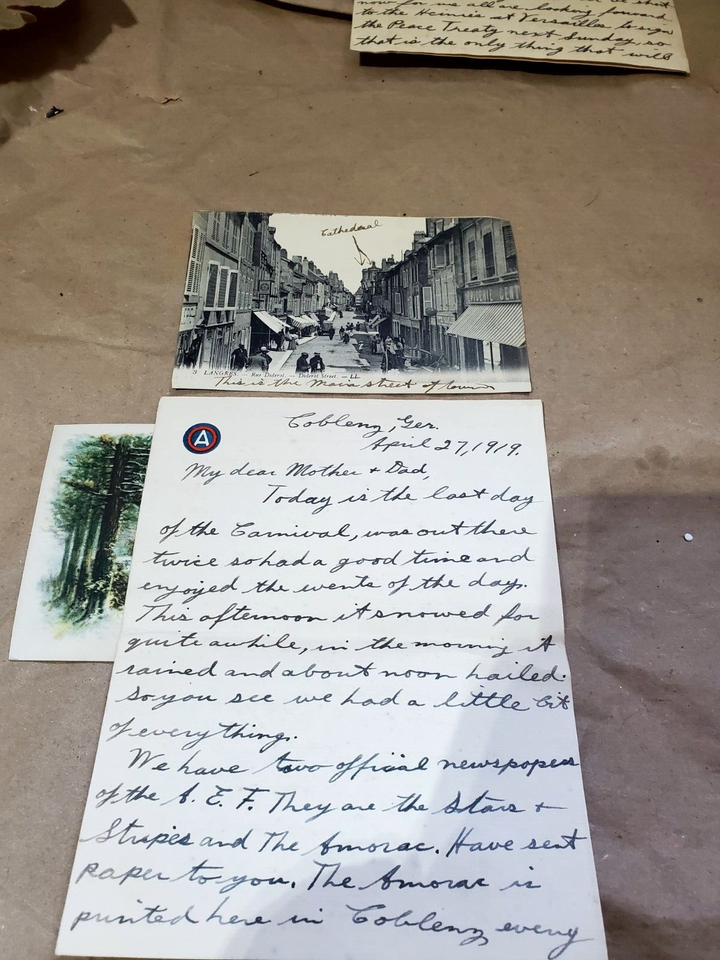 now for us all are looking forward
to the Heinies at Versailles to sign
the Peace Treaty next Sunday, so
that is the only thing that will
Cathedral
3 LANGRES. - Rue Diderot. - Diderot Street. - LL.
This is the main street of town
A
Coblenz, Ger.
April 27, 1919.
My dear Mother + Dad,
Today is the last day
of the Carnival, was out there
twice so had a good time and
enjoyed the events of the day.
This afternoon it snowed for
quite awhile, in the morning it
rained and about noon hailed.
So you see we had a little bit
of everything.
We have two official newspapers
of the A. E. F. They are the Stars +
Stripes and The Amorac. Have sent
paper to you. The Amorac is
printed here in Coblenz every